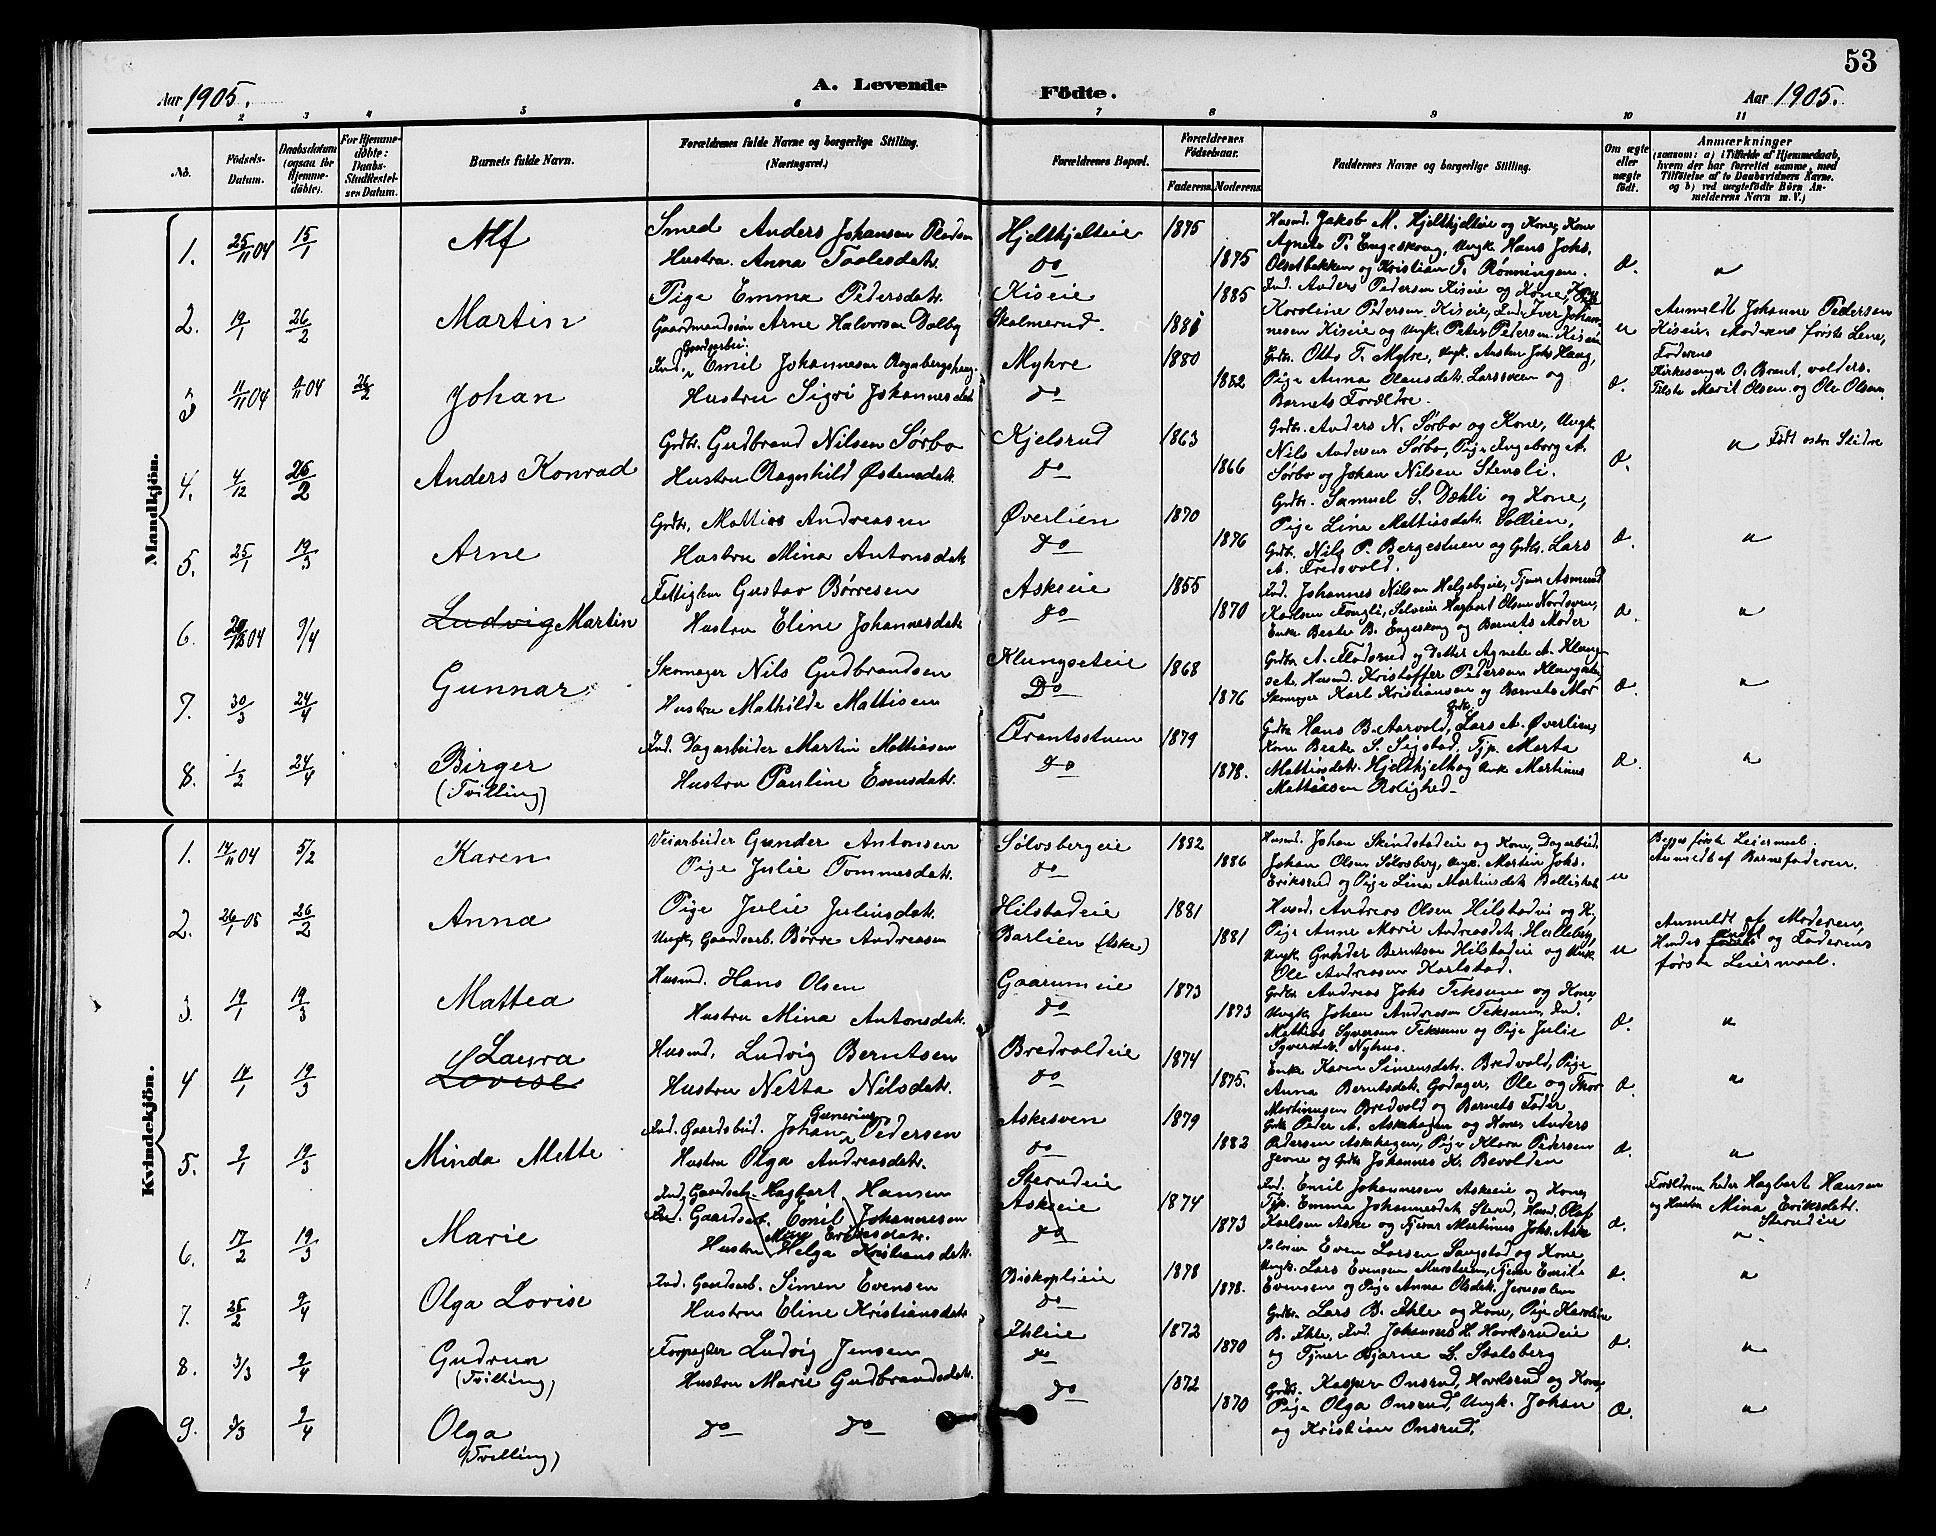 53
Aar 1905.
A. Levende
Födte.
Aar 1905.
1 2 3 4 5 6 7 8 9 10 11
No.
Födsels-
Datum.
Daabsdatum
(ogsaa for
Hjemme-
döbte).
For Hjemme-
döbte:
Daabs-
Stadfæstel-
sen Datum.
Barnets fulde Navn.
Forældrenes fulde Navne og borgerlige Stilling.
(Næringsvei.)
Forældrenes Bopæl.
Forældrenes
Födselsaar.
Faderens. Moderens.
Faddernes Navne og borgerlige Stilling.
Om ægte
eller
uægte
født.
Anmærkninger
(saasom: a) i Tilfælde af Hjemmedaab,
hvem der har forrettet samme, med
Tilföielse af to Daabsvidners Navne.
og b) ved uægtefödte Börn An-
melderens Navn m. V.)
Mandkjön.
1. 25/11 04 15/1 Alf
Smed Anders Johansen
Hustru. Anna
Hjeltkjelteie
do
1875
1875
Husmd. Jakob M. Hjeltkjelteie og Kone, Kone
Agnete T. Engeskoug, Ungk. Hans Johs.
Olsetbakken og Kristian T. Rønningen.
æ. "
2. 19/1 26/2 Martin
Pige Emma Pedersdatr.
Gaardmandssøn Arne Halvorsen Dalby
Kiseie
Skalmerud.
1885
1881
Ind. Anders Pedersen Kiseie og Kone, Pige
Karoline Pedersen Kiseie, Ind. Iver Johan-
nesen Kiseie og Ungk. Peter Pedersen Kiseie
u
Anmeldt Johannes Pedersen
Kiseie, Moderens første Leie,
Faderens
3 11/11 04 11/11 04 26/2 Johan
Gaardarbei.
Ind. Emil Johannesen
Hustru Sigri Johannesdatr
Myhre
do
1880
1882
Grdbr. Otto T. Myhre, Ungk. Anton Johs Haug,
Pige Anna Olausdatr. Larsveen og
Barnets Forældre.
æ.
Kirkesanger O. Brant, volders.
Marit Olsen og Ole Olsen.
4. 4/12 26/2 Anders Konrad
Grdbr. Gudbrand Nilsen Sørbo
Hustru Ragnhild Østensdatr.
Kjelsrud
do
1863
1866
Grdbr. Anders N. Sørbo og Kone, Ungk.
Nils Andersen Sørbo, Pige Ingeborg A.
Sørbo og Johan Nilsen Stensli.
æ.
" Født østre Slidre
5. 25/1 19/3 Arne
Grdbr. Mattias Andreasen
Hustru Mina Antonsdatr.
Øverlien
do
1870
1876
Grdbr. Samuel S. Dæhli og Kone,
Pige Lina Mattisdatr. Sollien,
Grdb. Nils P. Bergestuen og Grdb. Lars
A. Fredsvold.
æ. "
6. 29/12 04 9/4 Ludvig Martin
Fattiglem Gustav Børresen
Hustru Eline Johannesdatr.
Askeie
do
1855
1870
Ind. Johannes Nilsen Helgebyeie, Tjener Asmund
Karlsen Fougli, Selveier Herbert Olsen Nordsven,
Enke Beate B. Engeskoug og Barnets Moder
æ. "
7. 30/3 24/4 Gunnar
Skomager Nils Gudbrandsen
Hustru Mathilde Mattisen
Klungseteie
Do
1868
1876
Grdbr. A. Flodsrud og Datter Agnete A. Klung-
set. Husmd. Kristoffer Pedersen Klungseteie
Skomager Karl Kristiansen og Barnets Mor
æ. "
8. 1/2 24/4 Birger
(Tvilling)
Ind. Dagarbeider Martin Mattiasen
Hustru Pauline Evensdatr.
Frantsstuen
do
1879
1878.
Grdbr. Hans B. Aarvold, Grdbr. Lars A. Øverlien,
Kone Beate S. Sigstad, Tjp. Marta
Mattisdatr. Hjeltkjelt og Ungk. Martinus
Mattiasen Rolighed.
æ. "
Kvindekjön.
1. 14/11 04 5/2 Karen
Veiarbeider Gunder Antonsen
Pige Julie Tommesdatr.
Sølvsbergeie
do
1882
1886
Husmd. Johan Skindstadeie og Kone, Dagarbeid.
Johan Olsen Sølvsberg, Ungk. Martin Johs.
Eriksrud og Pige Lina Martinsdatr.
u
Begges første Leiermaal.
Anmeldt af Barnefaderen.
2. 26/1 05 26/2 Anna
Pige Julie Juliusdatr.
Ungk. Gaardsarb. Børre Andreasen
Hilstadeie
Barlien (Aske)
1881
1881
Husmd. Andreas Olsen Hilstadei og K,
Pige Anne Marie Andreasdatr. Halleberg,
Ungk. Gunder Berntsen Hilstadeie og Ungk.
Ole Andreasen Karlstad.
u
Anmeldt af Moderen,
Hendes andet og Faderens
første Leiermaal.
3. 19/1 19/3 Mattea
Husmd. Hans Olsen
Hustru Mina Antonsdatr.
Gaarumeie
do
1873
1873
Grdbr. Andreas Johs Teksum og Kone,
Ungk. Johan Andreasen Teksum, Ind.
Mattias Syversen Teksum og Pige Julie
Syversdatr. Nyhus.
æ. "
4 14/1 19/3 Laura
Lovise
Husmd. Ludvig Berntsen
Hustru Netta Nilsdatr.
Bredvoldeie
do
1874
1875.
Enke Karen Simensdatr. Bredvold, Pige
Anna Berntsdatr. Godager, Ole og Thor
Martinusen Bredvold og Barnets Fader
æ. "
5. 9/1 19/3 Minda Mette
Ind. Gaardsbud. Johan Gunerius Pedersen
Hustru Olga Andreasdatr.
Askesven
do
1879
1882
Grdb. Peder A. Askehagen og Kone, Anders
Pedersen Askehagen, Pige Klara Pedersen
Jevne og Grdb. Johannes K. Bevolden
æ. "
6. 17/2 19/3 Marie
Ind. Gaardsarb. Hagbart Hansen
Ind. Gaardsarb. Emil Johannesen
Mina Eriksdatr.
Hustru Helga Kristiansdatr.
Sterudeie
Askeie
do
1874
1873
Ind. Emil Johannesen Askeie og Kone,
Tjp. Emma Johannesdatr. Sterud, Husmd. Olaf
Karlsen Aske og Tjener Martinus Johs. Aske
æ.
Forældrene heder Hagbart Hansen
og Hustru Mina Eriksdatr.
Sterudeie
"
7. 25/2 9/4 Olga Lovise
Ind. Gaardsarb. Simen Evensen
Hustru Eline Kristiansdatr.
Biskoplieie
do
1878
1878.
Selveier Even Larsen Saugstad og Kone
Ungk. Lars Evensen Mursteen, Tjener Emil
Evensen og Pige Anna Olsdatr. Jerusalem
æ. "
8. 3/3 9/4 Gudrun
(Tvilling)
Forpagter Ludvig Jensen
Hustru Marie Gudbrandsdatr.
Ihleie
do
1872
1870
Grdbr. Lars B. Ihle og Kone, Pige Karoline
B. Ihle, Ind. Johannes H. Hovelsrudeie
og Tjener Bjarne L. Stalsberg
æ. "
9. 3/3 9/4 Olga
(Tvilling)
do do
do
1872
1870
Grdbr. Kasper Onsrud, Hovelsrud og Kone,
Pige Olga Onsrud, Ungk. Johan
og Kristian Onsrud.
æ. "